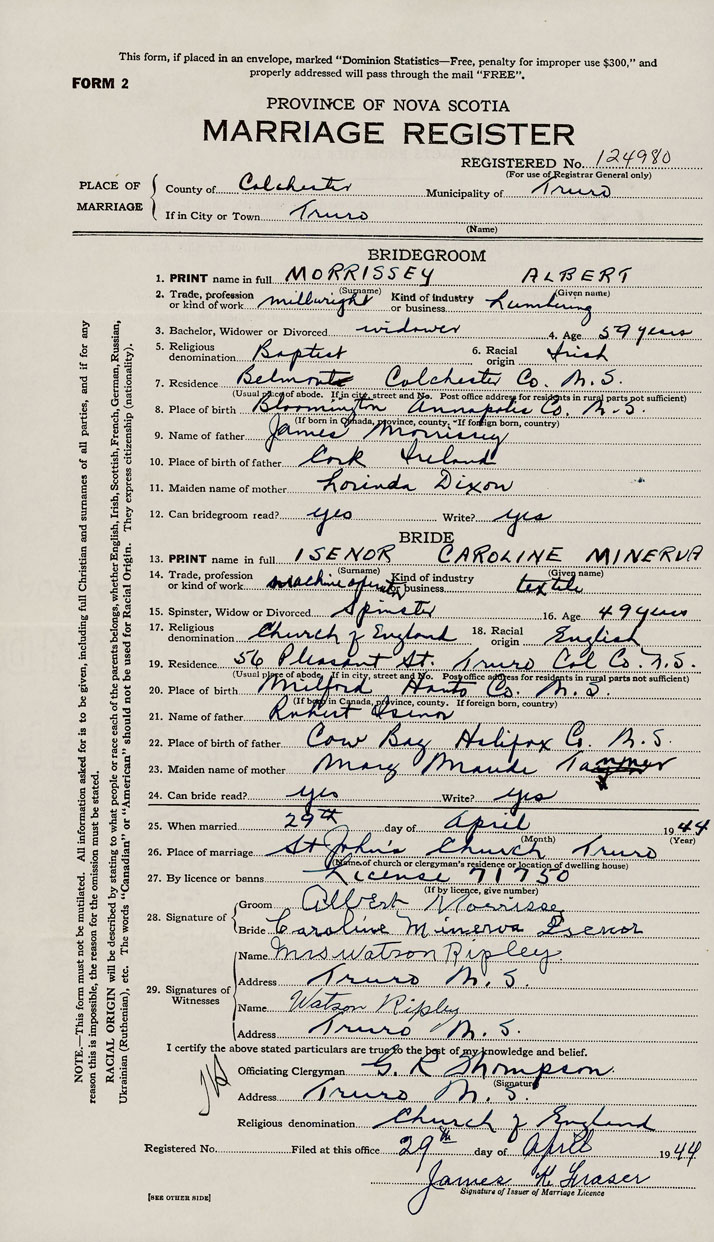 This form, if placed in an envelope, marked "Dominion Statistics—Free, penalty for improper use $300," and
properly addressed will pass through the mail "FREE".
FORM 2
PROVINCE OF NOVA SCOTIA
MARRIAGE REGISTER
REGISTERED No. 124980
(For use of Registrar General only)
PLACE OF MARRIAGE
County of Colchester Municipality of Truro
If in City or Town Truro
(Name)
BRIDEGROOM
1. PRINT name in full MORRISSEY ALBERT
(Surname) (Given name)
2. Trade, profession or kind of work millwright Kind of industry or business Lumbering
3. Bachelor, Widower or Divorced widower 4. Age 59 years
5. Religious denomination Baptist 6. Racial origin Irish
7. Residence Belmont Colchester Co. N.S.
(Usual place of abode. If in city, street and No. Post office address for residents in rural parts not sufficient)
8. Place of birth Bloomington Annapolis Co. N.S.
(If born in Canada, province, county. If foreign born, country)
9. Name of father James Morrissey
10. Place of birth of father Cork Ireland
11. Maiden name of mother Lorinda Dixon
12. Can bridegroom read? yes Write? yes
BRIDE
13. PRINT name in full ISENOR CAROLINE MINERVA
(Surname) (Given name)
14. Trade, profession or kind of work machine operator Kind of industry or business textile
15. Spinster, Widow or Divorced Spinster 16. Age 49 years
17. Religious denomination Church of England 18. Racial origin English
19. Residence 56 Pleasant St. Truro Col Co. N.S.
(Usual place of abode. If in city, street and No. Post office address for residents in rural parts not sufficient)
20. Place of birth Milford Hants Co. N.S.
(If born in Canada, province, county. If foreign born, country)
21. Name of father Robert Isenor
22. Place of birth of father Cow Bay Halifax Co. N.S.
23. Maiden name of mother Mary Maude
24. Can bride read? yes Write? yes
25. When married 29th day of April 1944
(Month) (Year)
26. Place of marriage St John's Church Truro
(Name of church or clergyman's residence or location of dwelling house)
27. By licence or banns License 71750
(If by licence, give number)
28. Signature of
Groom Albert Morrissey
Bride Caroline Minerva Isenor
29. Signatures of Witnesses
Name Mrs Watson Ripley
Address Truro N.S.
Name Watson Ripley
Address Truro N.S.
I certify the above stated particulars are true to the best of my knowledge and belief.
Officiating Clergyman G. R Thompson
(Signature)
Address Truro N.S.
Religious denomination Church of England
Registered No. Filed at this office 29th day of April 1944
James K. Fraser
Signature of Issuer of Marriage Licence
[SEE OTHER SIDE]
NOTE.—This form must not be mutilated. All information asked for is to be given, including full Christian and surnames of all parties, and if for any
reason this is impossible, the reason for the omission must be stated.
RACIAL ORIGIN will be described by stating to what people or race each of the parents belongs, whether English, Irish, Scottish, French, German, Russian,
Ukrainian (Ruthenian), etc. The words "Canadian" or "American" should not be used for Racial Origin. They express citizenship (nationality).